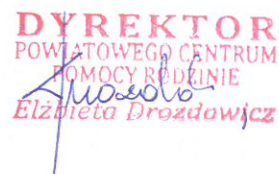 DYREKTOR
POWIATOWEGO CENTRUM
POMOCY RODZINIE
Elżbieta Drozdowicz